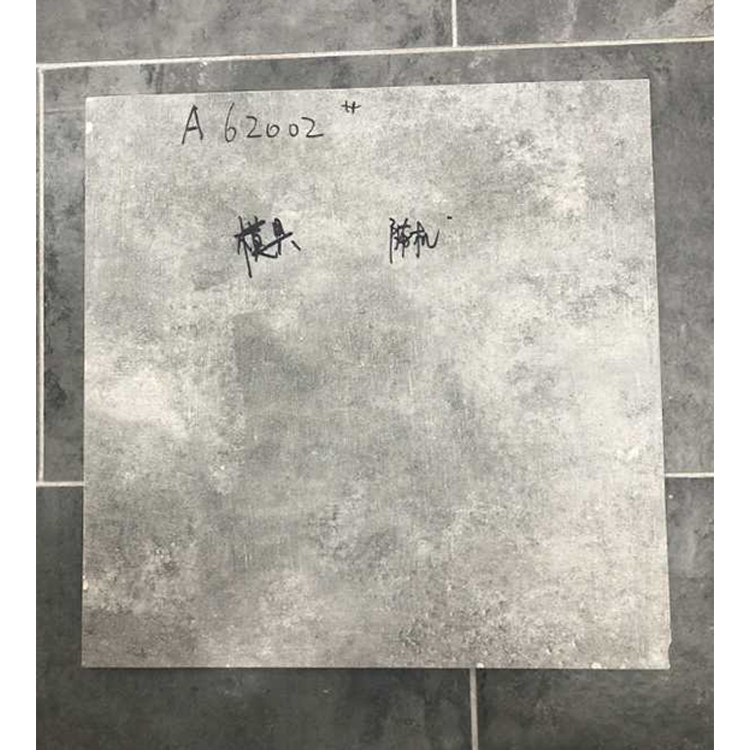 A 62002#
模具 随机